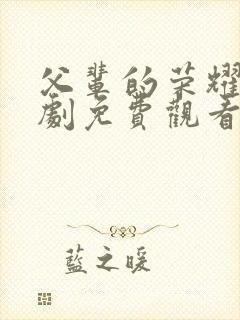 父輩的荣耀
劇免費觀看
藍之暖